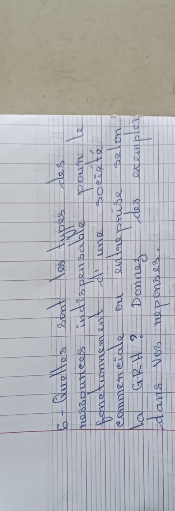 6 - Quelles sont les types des
ressources indispensable pour le
fonctionnement d'une société
commerciale ou entreprise selon
la GRH ? Donnez des exemples
dans vos reponses.